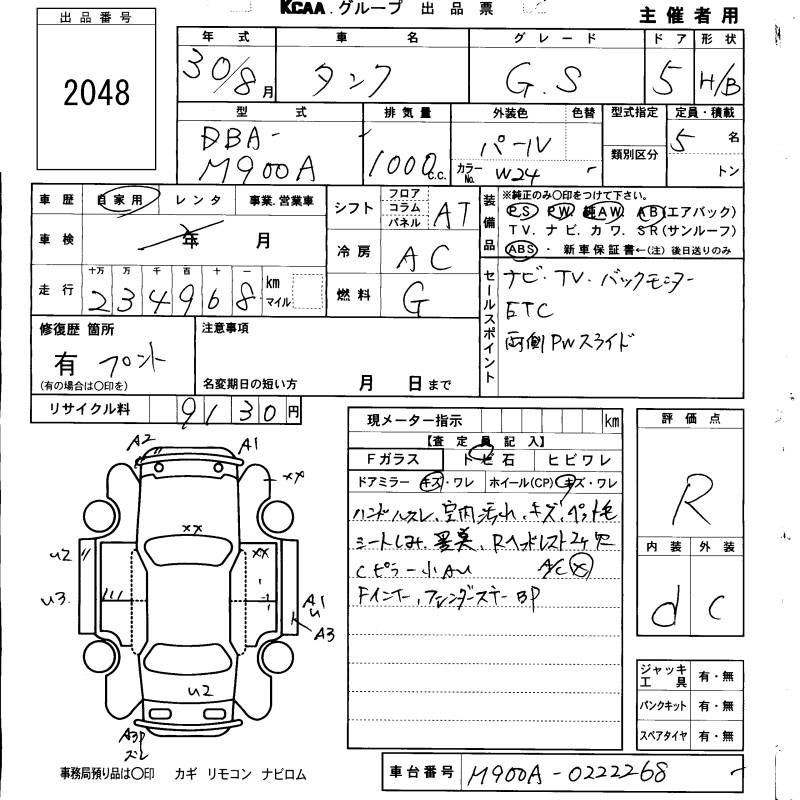 KCAA.グループ 出品票
主催者用
出品番号
2048
年式 車名 グレード ドア 形状
30/8月 タンク G.S 5 H/B
型式 排気量 外装色 色替 型式指定 定員・積載
DBA-
M900A
1000 c.c.
パール
カラーNo. W24
類別区分
5名
トン
車歴 自家用 レンタ 事業.営業車
車検 年 月
走行 十万 万 千 百 十 一
234968 km マイル
シフト フロア コラム パネル AT
冷房 AC
燃料 G
装備品
※純正のみ〇印をつけて下さい。
PS PW. 純AW. AB(エアバック)
TV. ナビ. カワ. SR(サンルーフ)
ABS・新車保証書←(注)後日送りのみ
セールスポイント
ナビ・TV・バックモニター
ETC
両側PWスライド
修復歴 箇所
有 フロント
(有の場合は〇印を)
注意事項
名変期日の短い方 月 日まで
リサイクル料 9130円
現メーター指示 km
【査定員記入】
Fガラス トビ石 ヒビワレ
ドアミラー キズ・ワレ ホイール(CP) キズ・ワレ
ハンドルスレ、室内汚れ、キズ、ペット毛
シートしみ、異臭、Rヘッドレスト2ヶ欠
Cピラー小AU A/C×
Fインナー、フェンダーステーBP
評価点
R
内装 外装
d C
ジャッキ工具 有・無
パンクキット 有・無
スペアタイヤ 有・無
A2 A1
xx
xx
xx
u2
u3
A1
u
A3
u2
A3P
ズレ
事務局預り品は〇印 カギ リモコン ナビロム
車台番号 M900A-0222268